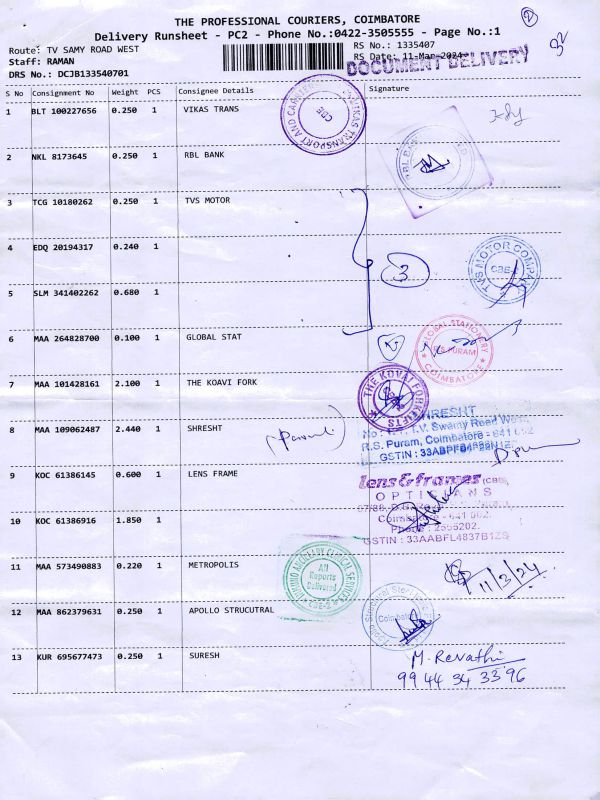 THE PROFESSIONAL COURIERS, COIMBATORE
Delivery Runsheet - PC2 - Phone No.:0422-3505555 - Page No.:1
2
32
Route: TV SAMY ROAD WEST
RS No.: 1335407
Staff: RAMAN
RS Date: 11-Mar-2024
DOCUMENT DELIVERY
DRS No.: DCJB133540701
S No Consignment No Weight PCS Consignee Details Signature
1 BLT 100227656 0.250 1 VIKAS TRANS
CBE
2 NKL 8173645 0.250 1 RBL BANK
3 TCG 10180262 0.250 1 TVS MOTOR
4 EDQ 20194317 0.240 1
3
TVS MOTOR COMPANY
CBE-2
5 SLM 341402262 0.680 1
6 MAA 264828700 0.100 1 GLOBAL STAT
GLOBAL STATIONERY
R.S PURAM
COIMBATORE
7 MAA 101428161 2.100 1 THE KOAVI FORK
THE KOVAI FORKLIFTS
8 MAA 109062487 2.440 1 SHRESHT
SHRESHT
T.V. Swamy Road West
R.S. Puram, Coimbatore - 641 002
GSTIN :
9 KOC 61386145 0.600 1 LENS FRAME
Lens & frames (CBE)
OPTICIANS
10 KOC 61386916 1.850 1
Coimbatore - 641 002.
Phone : 2555202.
GSTIN : 33AABFL4837B1ZS
11 MAA 573490883 0.220 1 METROPOLIS
All
Reports
Delivered
CBE-2
11/3/24
12 MAA 862379631 0.250 1 APOLLO STRUCUTRAL
Coimbatore
13 KUR 695677473 0.250 1 SURESH
M. Revathi
99 44 34 33 96